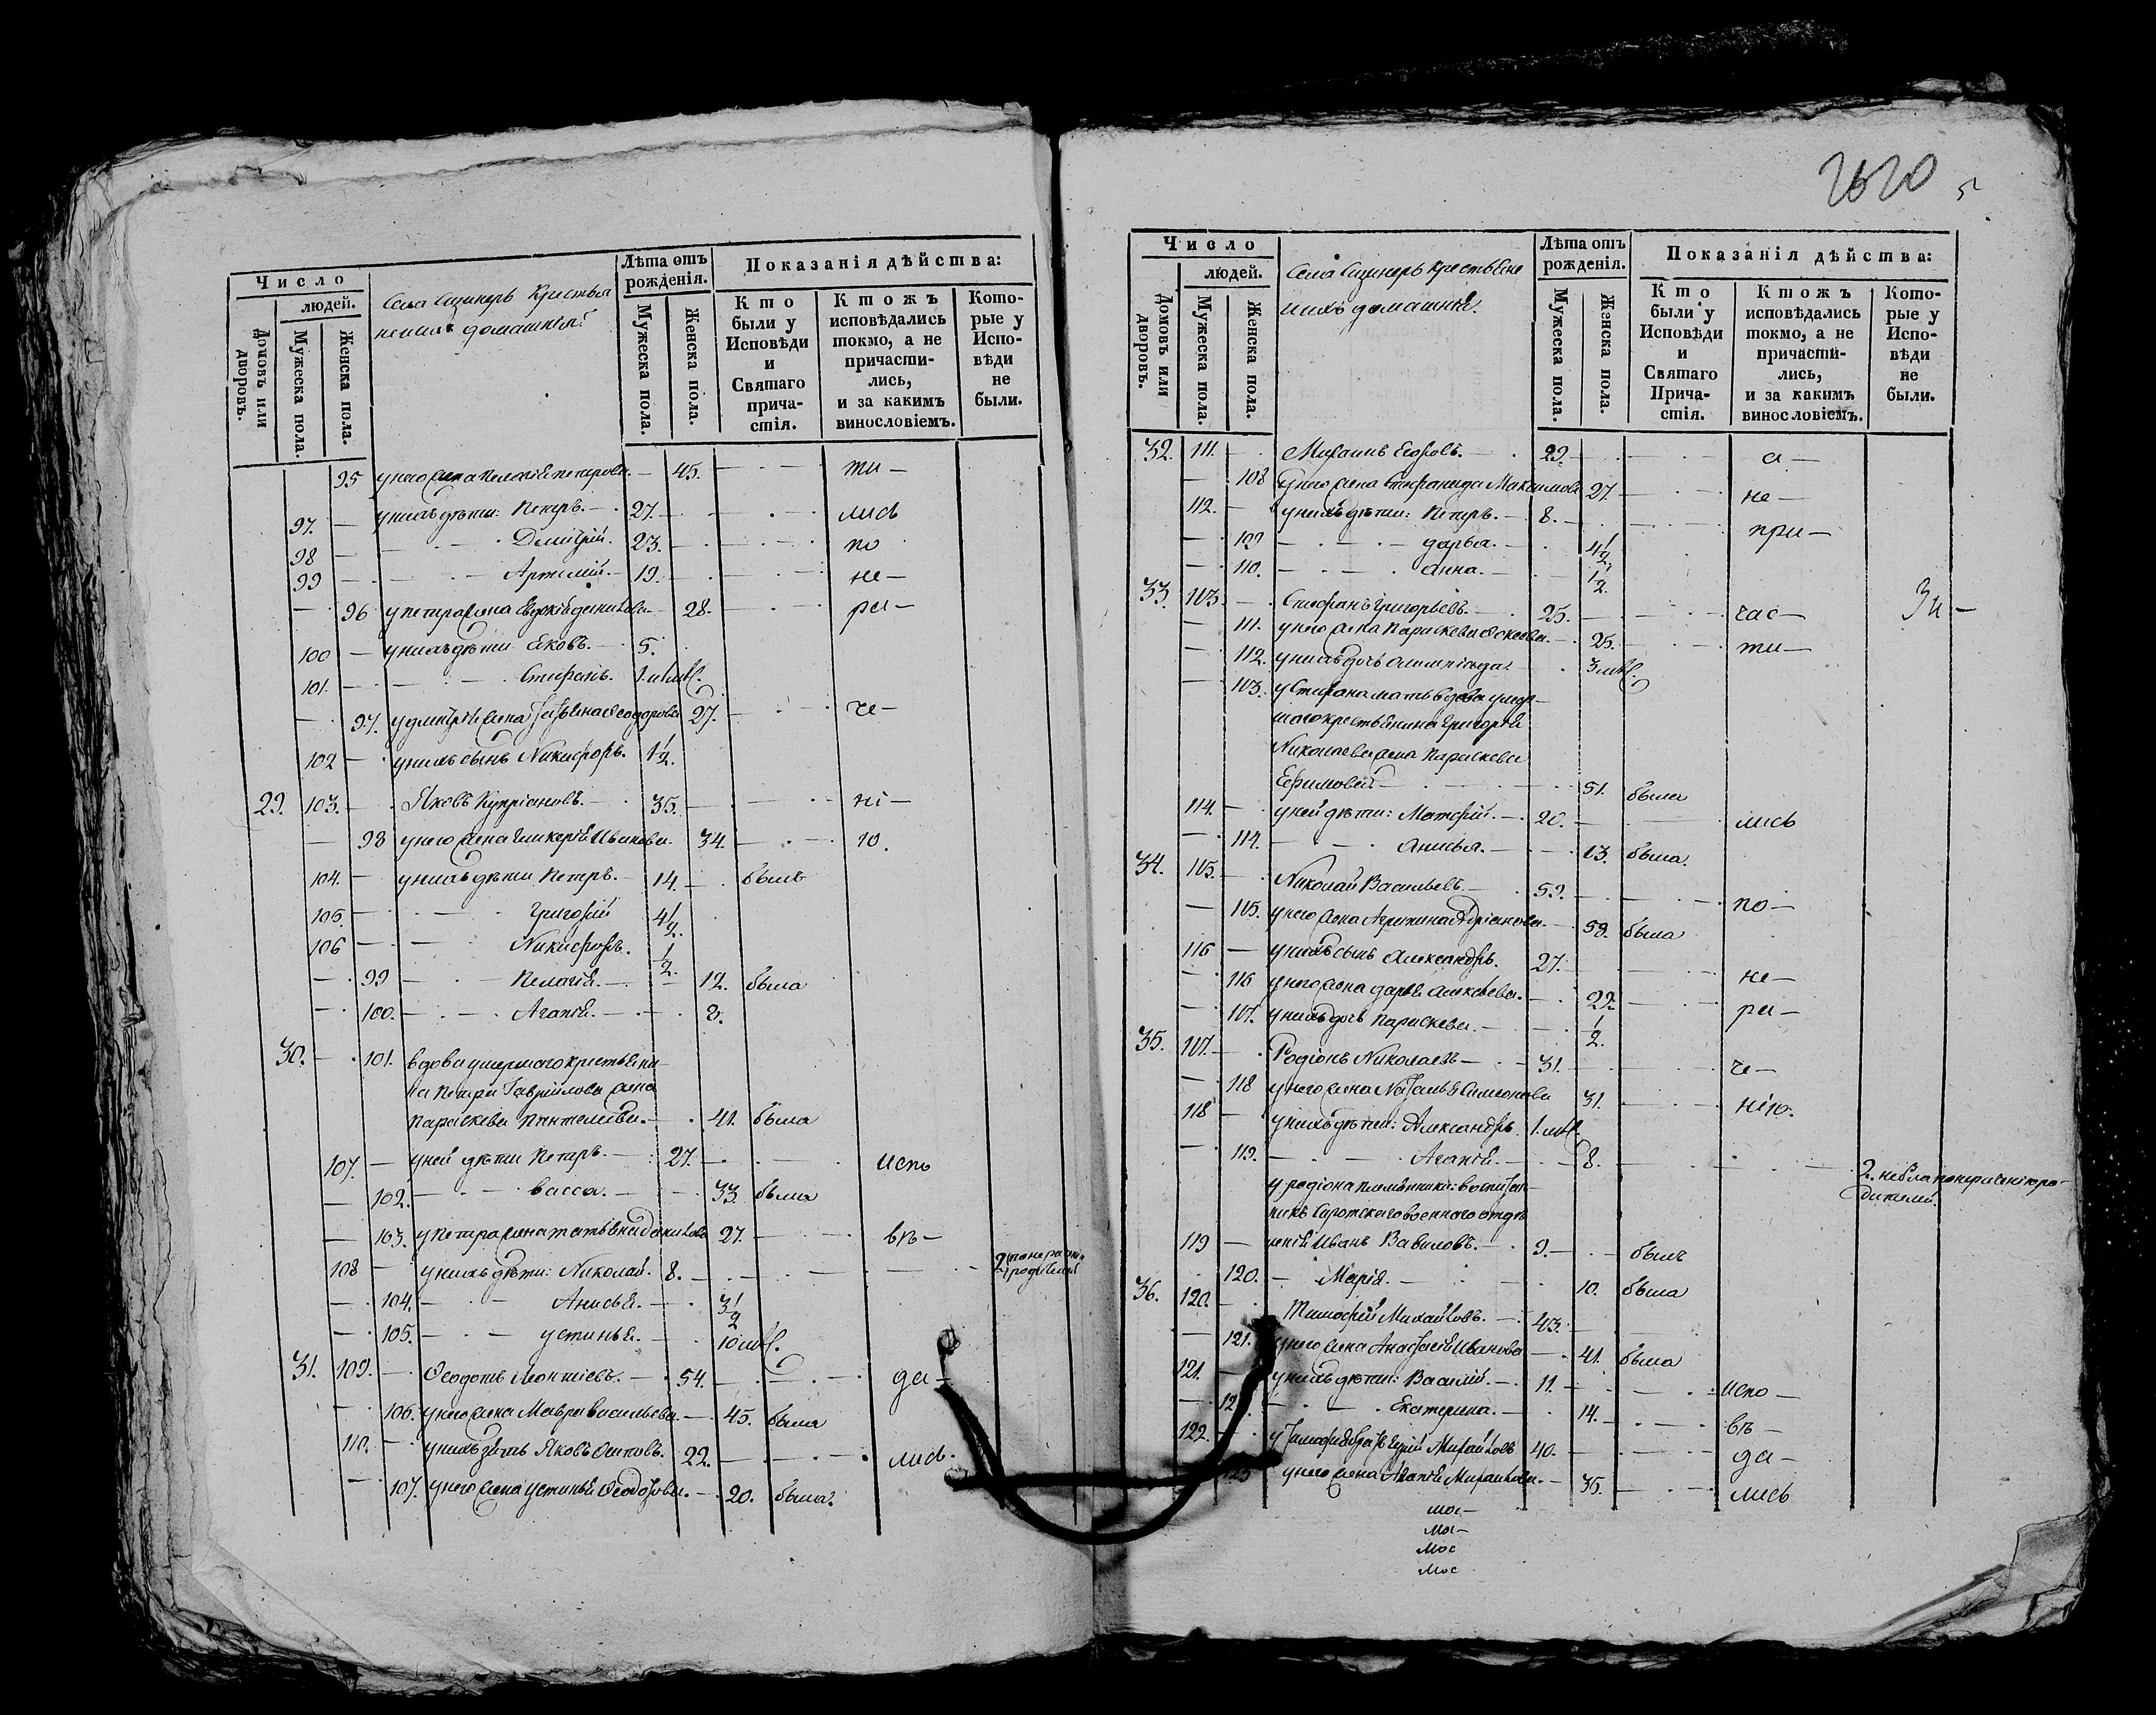 Число
людей.
Домовъ или дворовъ.
Мужеска пола.
Женска пола.
Села Крестья
домашнія:
Лѣта отъ
рожденія.
Мужеска пола.
Женска пола.
Показанія дѣйства:
Кто
были у
Исповѣди
и
Святаго
прича-
стія.
Ктожъ
исповѣдались
токмо, а не
причасти-
лись,
и за какимъ
винословіемъ.
Кото-
рые у
Испо-
вѣди
не
были.
95 у него жена Пелагія Петрова. 45. ти-
97. у нихъ дѣти: Петръ. 27. лись
98 Димитрій. 23. по
99 Артемій. 19. не-
96 у Петра жена Евдокія 28. ра-
100 у нихъ дѣти Яковъ. 5.
101. Стефанъ. 1.
97. у Димитрія жена Татьяна Ѳеодорова 27. че-
102 у нихъ сынъ Никифоръ. 1 1/2.
29. 103. Яковъ Купріяновъ. 35. ні-
98 у него жена Гликерія Иванова. 34. ю.
104. у нихъ дѣти Петръ. 14. былъ
105. Григорій 4 1/2.
106 Никифоръ. 1/2.
99 Пелагія. 12. была
100. Агапія. 8.
30. 101. вдова умершаго крестьяни-
на Петра Гаврилова жена
Параскева Пантелиева. 41. была
107. у ней дѣти Петръ. 27. испо
102. Васса. 33. была
103. у Петра жена Татьяна 27. вѣ-
108 у нихъ дѣти: Николай. 8.
104. Анисья. 3 1/2
105. Устинья. 10
31. 109. Ѳеодотъ Леонтіевъ. 54. да-
106. у него жена Мавра Васильева. 45. была
110. у нихъ зять Яковъ Осиповъ. 22. лись.
107. у него жена Устинья Ѳеодотова. 20. была.
2620
Число
людей.
Домовъ или дворовъ.
Мужеска пола.
Женска пола.
Села Крестьяне
ихъ домашніе.
Лѣта отъ
рожденія.
Мужеска пола.
Женска пола.
Показанія дѣйства:
Кто
были у
Исповѣди
и
Святаго
Прича-
стія.
Ктожъ
исповѣдались
токмо, а не
причасти-
лись,
и за какимъ
винословіемъ.
Кото-
рые у
Испо-
вѣди
не
были.
32. 111. Михаилъ Егоровъ. 29. а-
108 у него жена Стефанида Максимова 27. не-
112. у нихъ дѣти: Петръ. 8. при-
109 Дарья. 4 1/2
110. Анна. 1/2.
33. 113. Стефанъ Григорьевъ. 25. час-
111. у него жена Параскева 25. ти-
112. у нихъ дочь Олимпіада. 3
113. у Стефана мать вдова умер-
шаго крестьянина Григорія
Николаева жена Параскева
Ефимовая 51. была
114. у ней дѣти: Матфій. 20. лись
114. Анисья. 13. была.
34. 115. Николай Васильевъ. 59. по-
115. у него жена Агрипина Адріанова. 59. была
116 у нихъ сынъ Александръ. 27. не-
116 у него жена Дарья Алексѣева. 22. ра-
117. у нихъ дочь Параскева. 1/2
35. 117. Родіонъ Николаевъ 31. че-
118 у него жена Наталья Симеонова 31. нію.
118 у нихъ дѣти: Александръ. 1.
119. Агапія. 8.
у Родіона племянники: воспитан-
никъ военнаго отдѣ
119 ленія Иванъ Вавиловъ. 9. былъ
120. Марія. 10. была
36. 120. Тимофій Михайловъ. 43.
121. у него жена Анастасія Иванова 41. была
121. у нихъ дѣти: Василій. 11. испо-
Екатерина. 14. вѣ-
122. у Тимофея братъ Михайловъ 40. да-
у него жена Агапія Михайлова. 35. лись